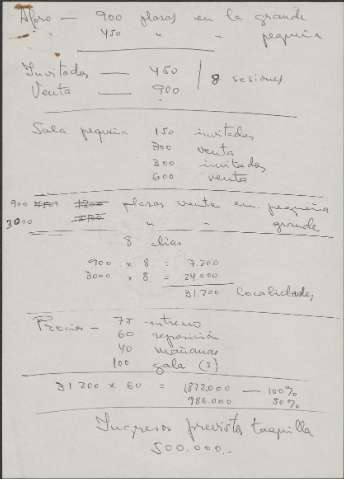 Aforo — 900 plazas en la grande
" 450 " " pequeña
Invitados — 450
Venta — 900
8 sesiones
Sala pequeña 150 invitados
300 venta
300 invitados
600 venta
900 plazas venta en pequeña
3000 " " grande
8 dias
900 x 8 = 7.200
3000 x 8 = 24.000
31.200 localidades
Precios — 75 estreno
60 reposición
40 mañanas
100 gala (2)
31.200 x 60 = 1872.000 — 100%
986.000 50%
Ingresos previstos taquilla
500.000.